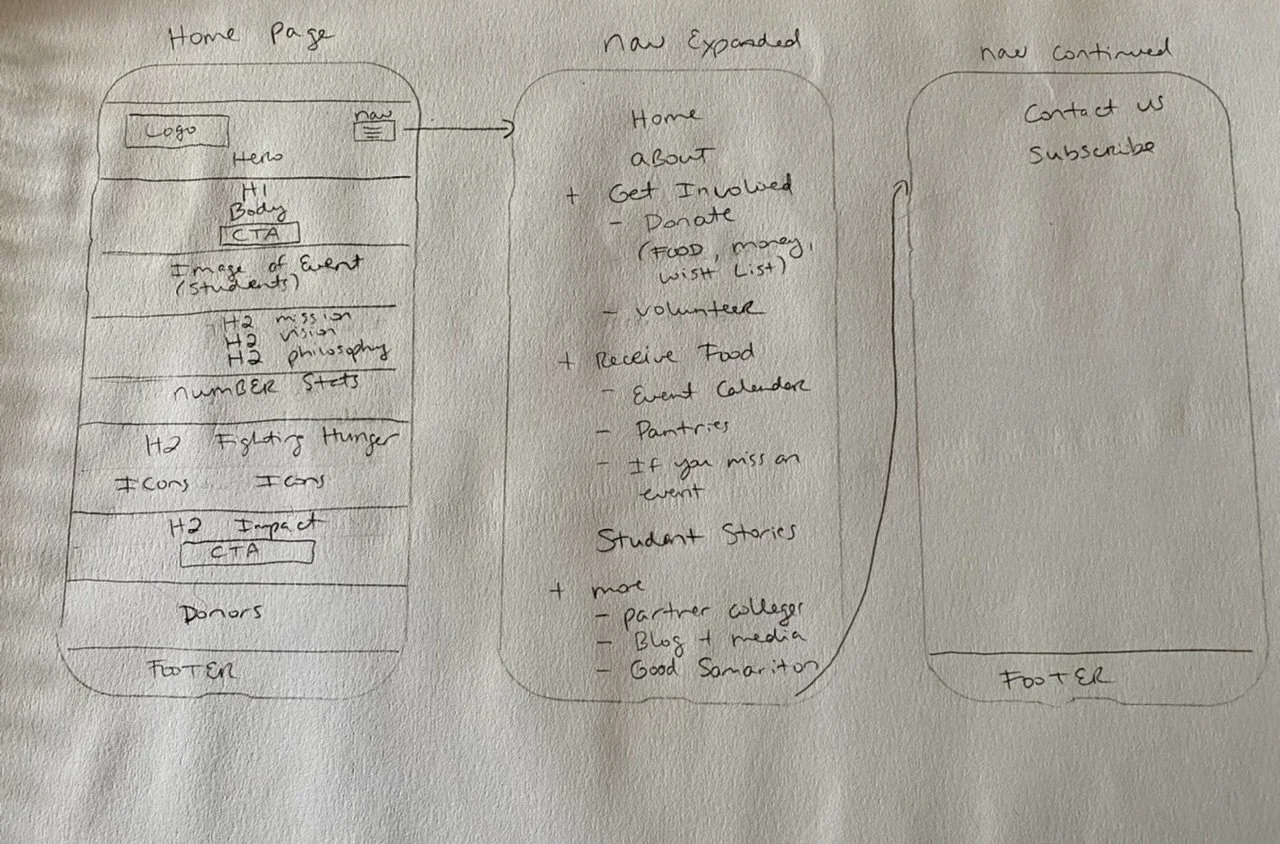 Home Page
Logo
nav
Hero
H1
Body
CTA
Image of Event
(students)
H2 mission
H2 vision
H2 philosophy
numBER Stats
H2 Fighting Hunger
Icons Icons
H2 Impact
CTA
Donors
FOOTER
nav Expanded
Home
aBOUT
+ Get Involved
- Donate
(FOOD, money,
wish List)
- volunteer
+ Receive Food
- Event Calendar
- Pantries
- If you miss an
event
Student Stories
+ more
- partner colleges
- Blog + media
- Good Samariton
nav continued
Contact us
Subscribe
FOOTER